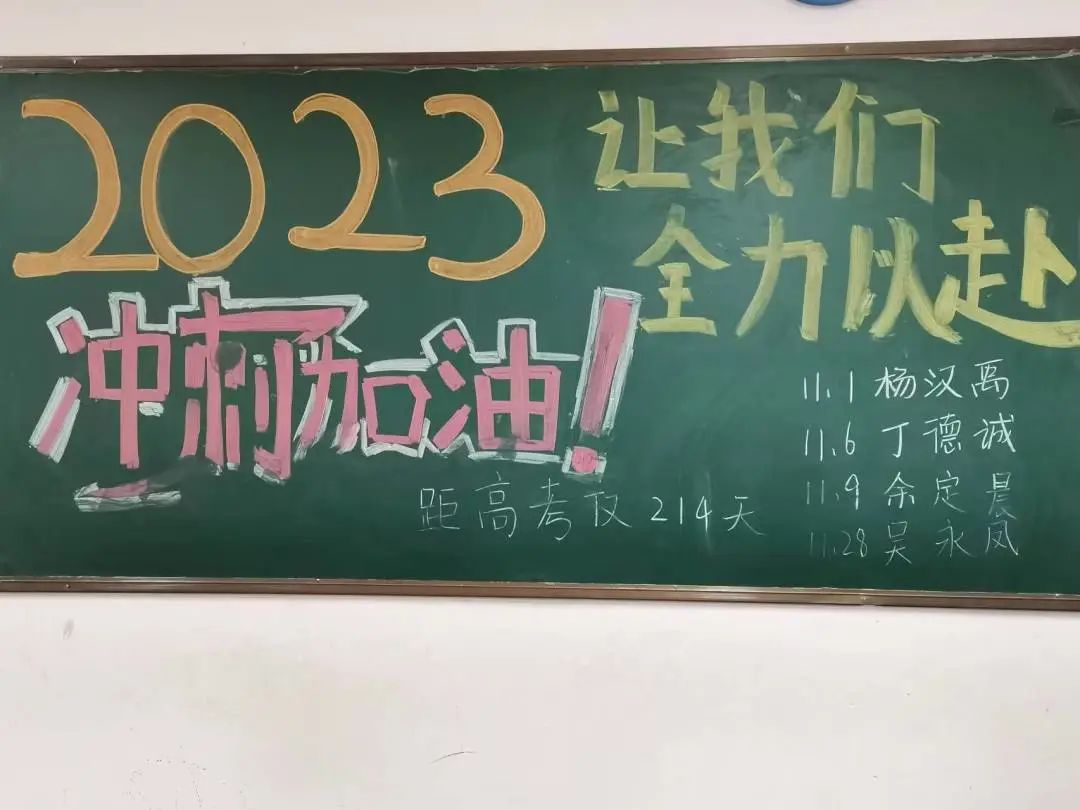 2023
让我们
全力以赴
冲刺加油!
11.1 杨汉禹
11.6 丁德诚
11.9 余定晨
11.28 吴永凤
距高考仅214天